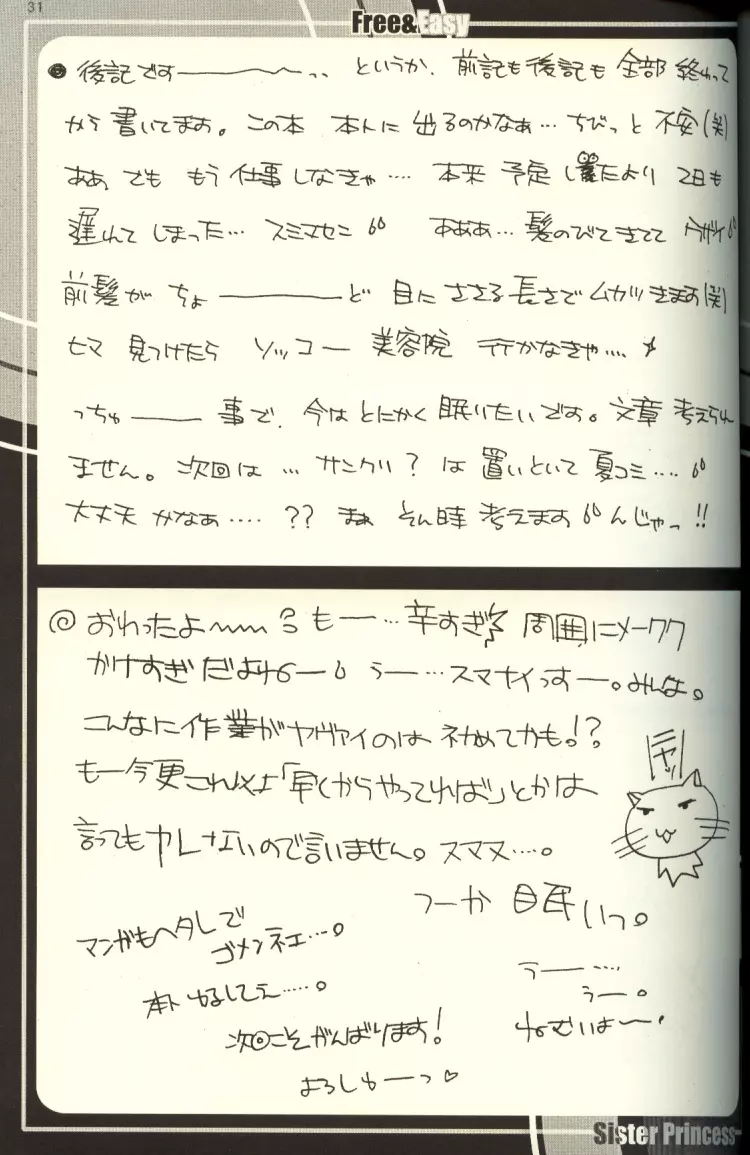 31
Free&Easy
後記です――〜‥ というか、前記も後記も全部終わって
から書いてます。この本 本トに出るのかなぁ…ちびっと不安(笑)
ああ、でも もう仕事しなきゃ…. 本来予定したより2日も
遅れてしまった…スミマセン あああ…髪のびてきてて ウザイ
前髪がちょ―――ど目にささる長さでムカツきます(笑)
ヒマ見つけたら ソッコー美容院行かなきゃ….
っちゅ――事で、今はとにかく眠りたいです。文章考えられ
ません。次回は…サンクリ?は置いといて夏コミ….
大丈夫かなぁ….?? まぁ そん時考えます んじゃっ!!
◎おわったよ〜〜 もー…辛すぎ 周囲にメーワク
かけすぎだよ うー…スマナイっすー。みんな。
こんなに作業がヤヴァイのは初めてかも!?
もー今更これ以上「早くからやってれば」とかは
言ってもヤレないので言いません。スマヌ…。
ヤッ
つーか眠いっ。
マンガもヘタレで
ゴメンネェ…。
うー―….
うー。
ねむいよ〜
本ト ゆるしてぇ…..。
次◎こそがんばります!
よろしゅーっ♡
Sister Princess